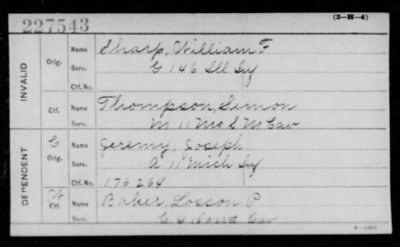 (3-H-4)
227543
INVALID
Orig.
Name Sharp, William F
Serv. G 146 Ill Inf
Ctf. No.
Ctf.
Name Thompson, Simon
Serv. M 11 Mo S M Cav
DEPENDENT
C
Orig.
Name Jeremy, Joseph
Serv. A 11 Mich Inf
Ctf. No. 176264
W
Ctf.
Name Baker, Losson P
Serv. C 8 Iowa Cav